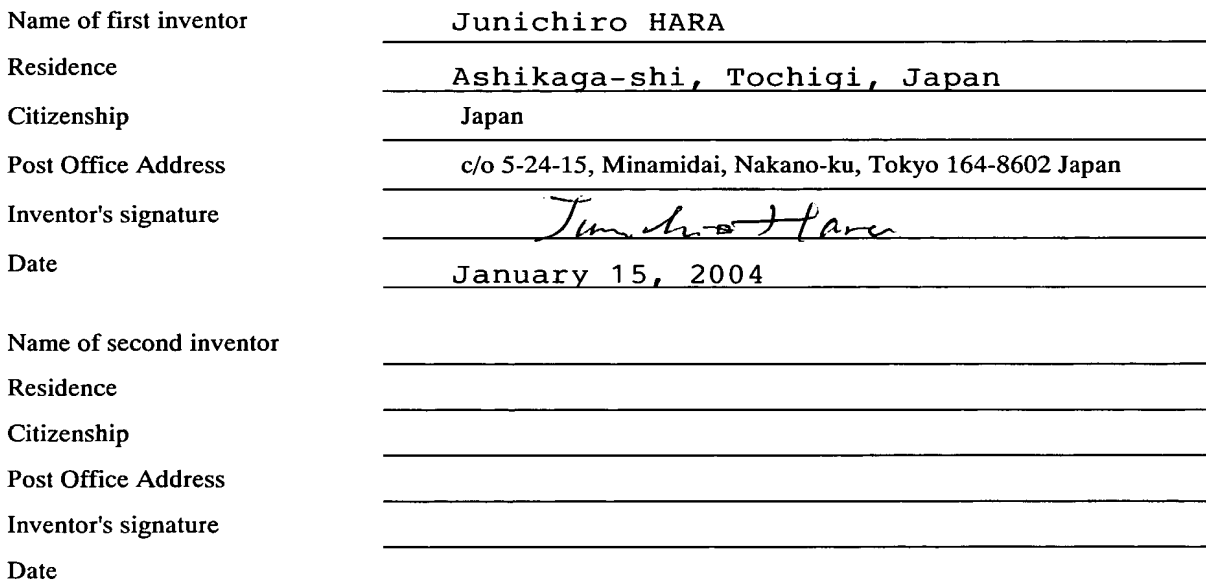 Name of first inventor Junichiro HARA
Residence Ashikaga-shi, Tochigi, Japan
Citizenship Japan
Post Office Address c/o 5-24-15, Minamidai, Nakano-ku, Tokyo 164-8602 Japan
Inventor's signature Junichiro Hara
Date January 15, 2004
Name of second inventor
Residence
Citizenship
Post Office Address
Inventor's signature
Date